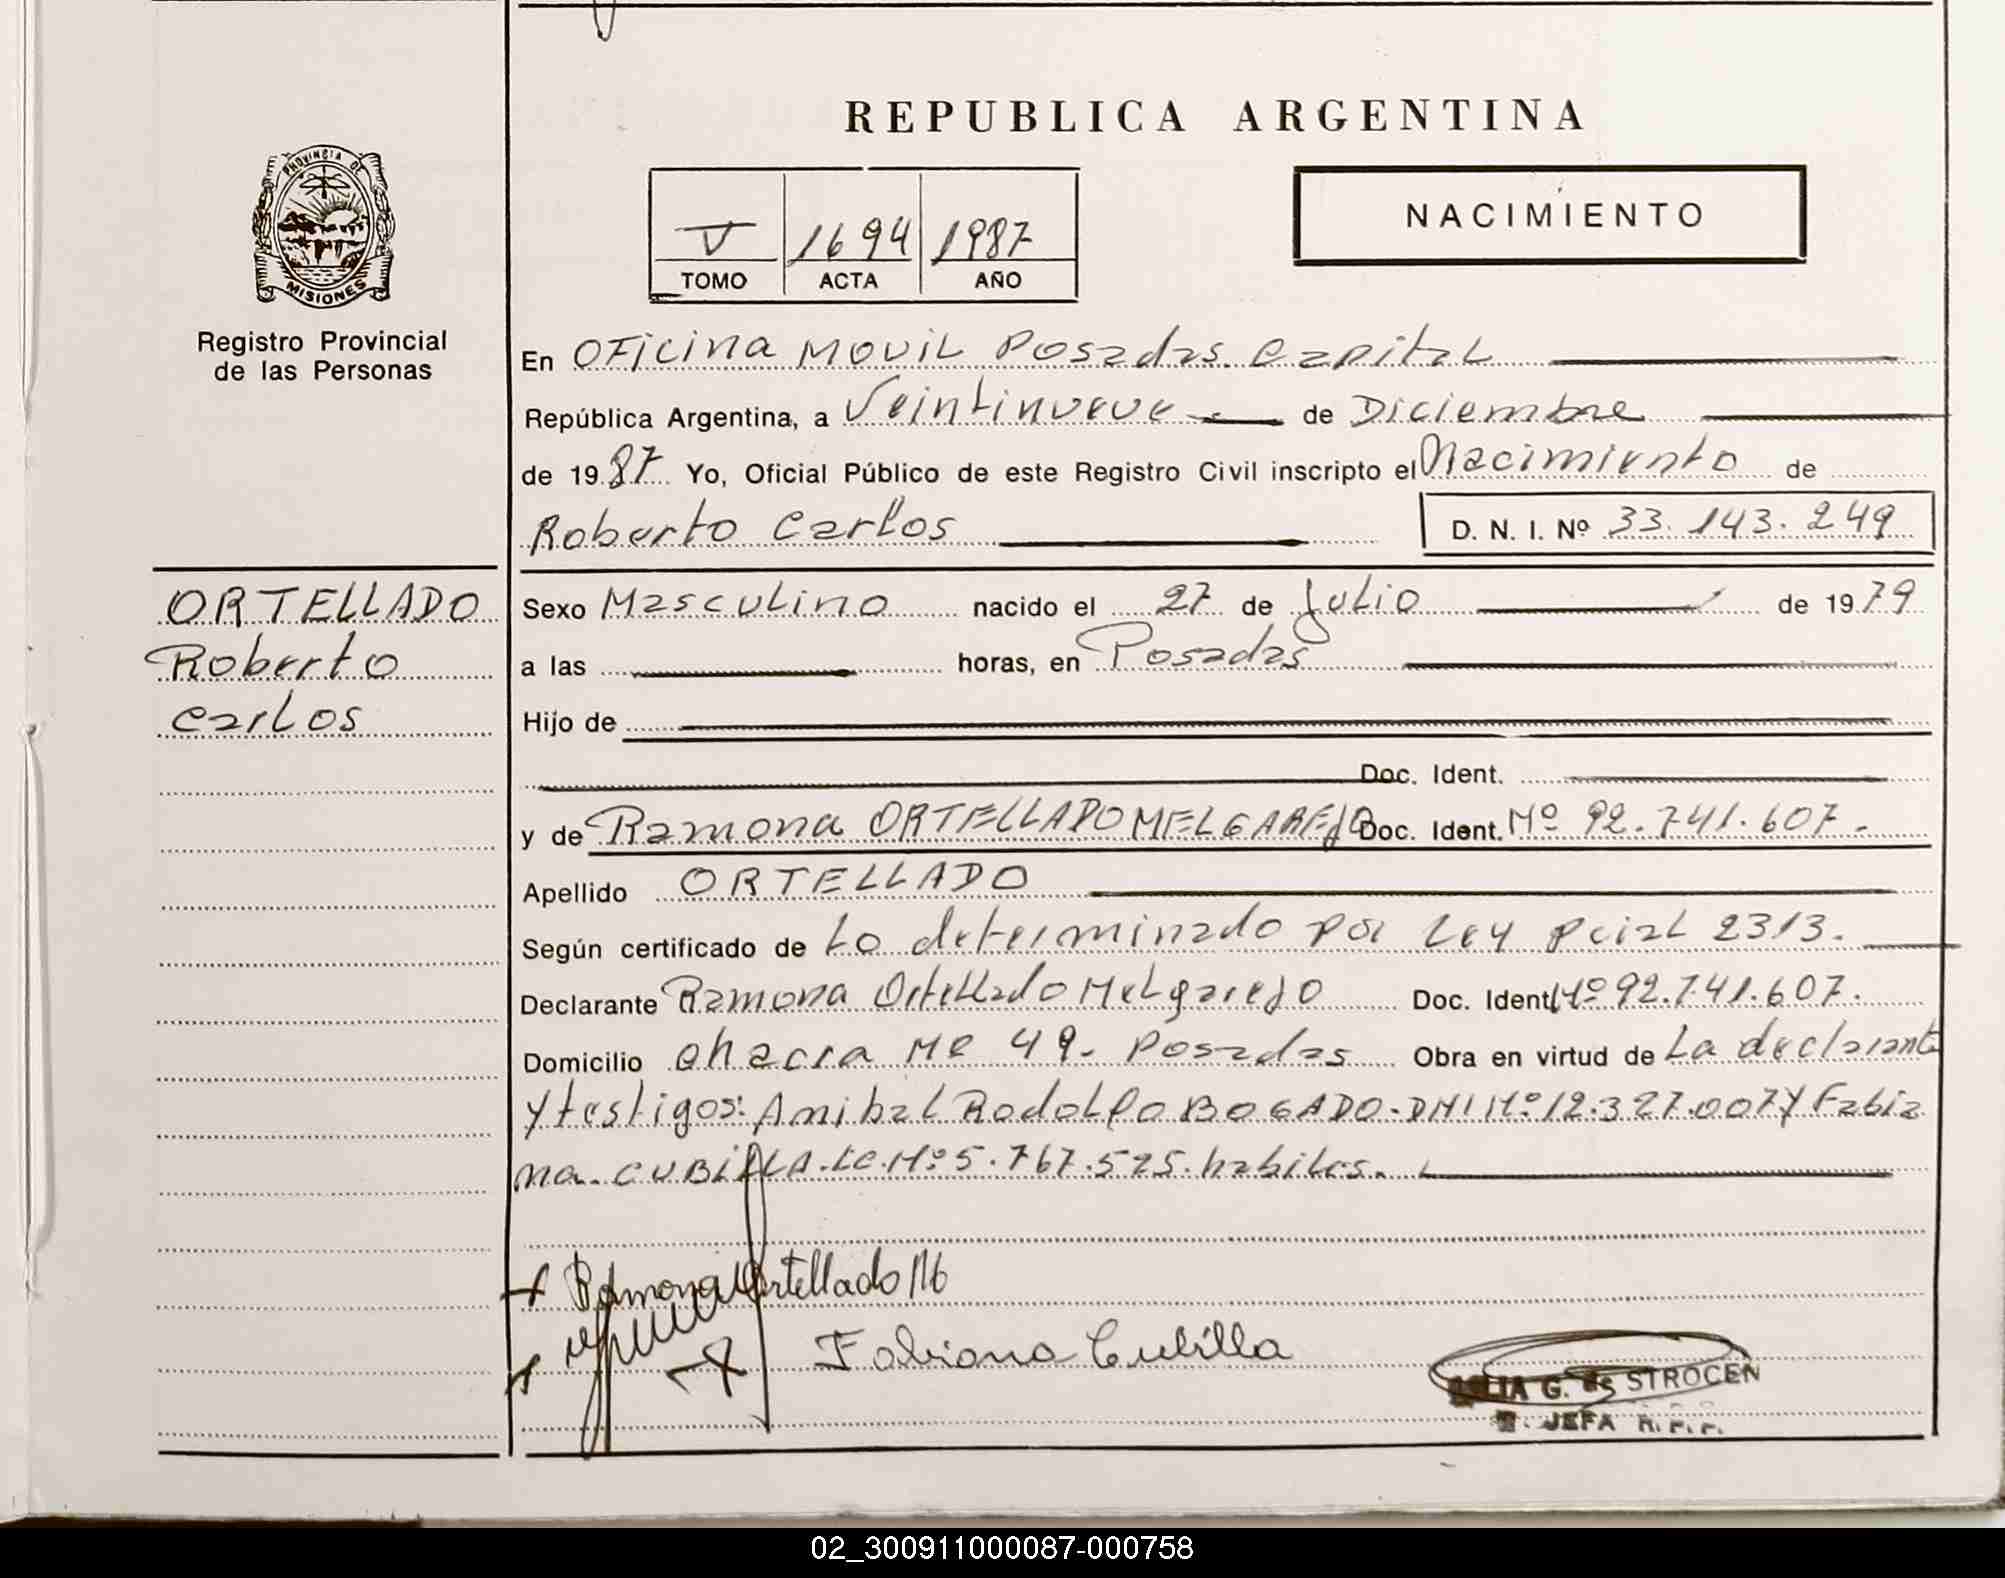 REPUBLICA ARGENTINA
PROVINCIA DE
MISIONES
Registro Provincial
de las Personas
V 1694 1987
TOMO ACTA AÑO
NACIMIENTO
En OFicina MOVIL Posadas. Capital
República Argentina, a Veintinueve de Diciembre
de 19 87 Yo, Oficial Público de este Registro Civil inscripto el Nacimiento de
Roberto Carlos D. N. I. Nº 33.143.249
ORTELLADO
Roberto
Carlos
Sexo Masculino nacido el 27 de Julio de 19 79
a las horas, en Posadas
Hijo de
Doc. Ident.
y de Ramona ORTELLADO MELGAREJO Doc. Ident. Nº 92.741.607.-
Apellido ORTELLADO
Según certificado de Lo determinado por Ley Pcial 2313.
Declarante Ramona Ortellado Melgarejo Doc. Ident Nº 92.741.607.
Domicilio chacra 49.- Posadas Obra en virtud de La declarante
y testigos: Anibal Rodolfo BOGADO- DNI Nº 12.327.007 y Fabia
na CUBILLA. LC. Nº 5.767.525. habiles.
Ramona Ortellado M
Fabiana Cubilla
G. de STROCEN
JEFA R. P. P.
02_300911000087-000758